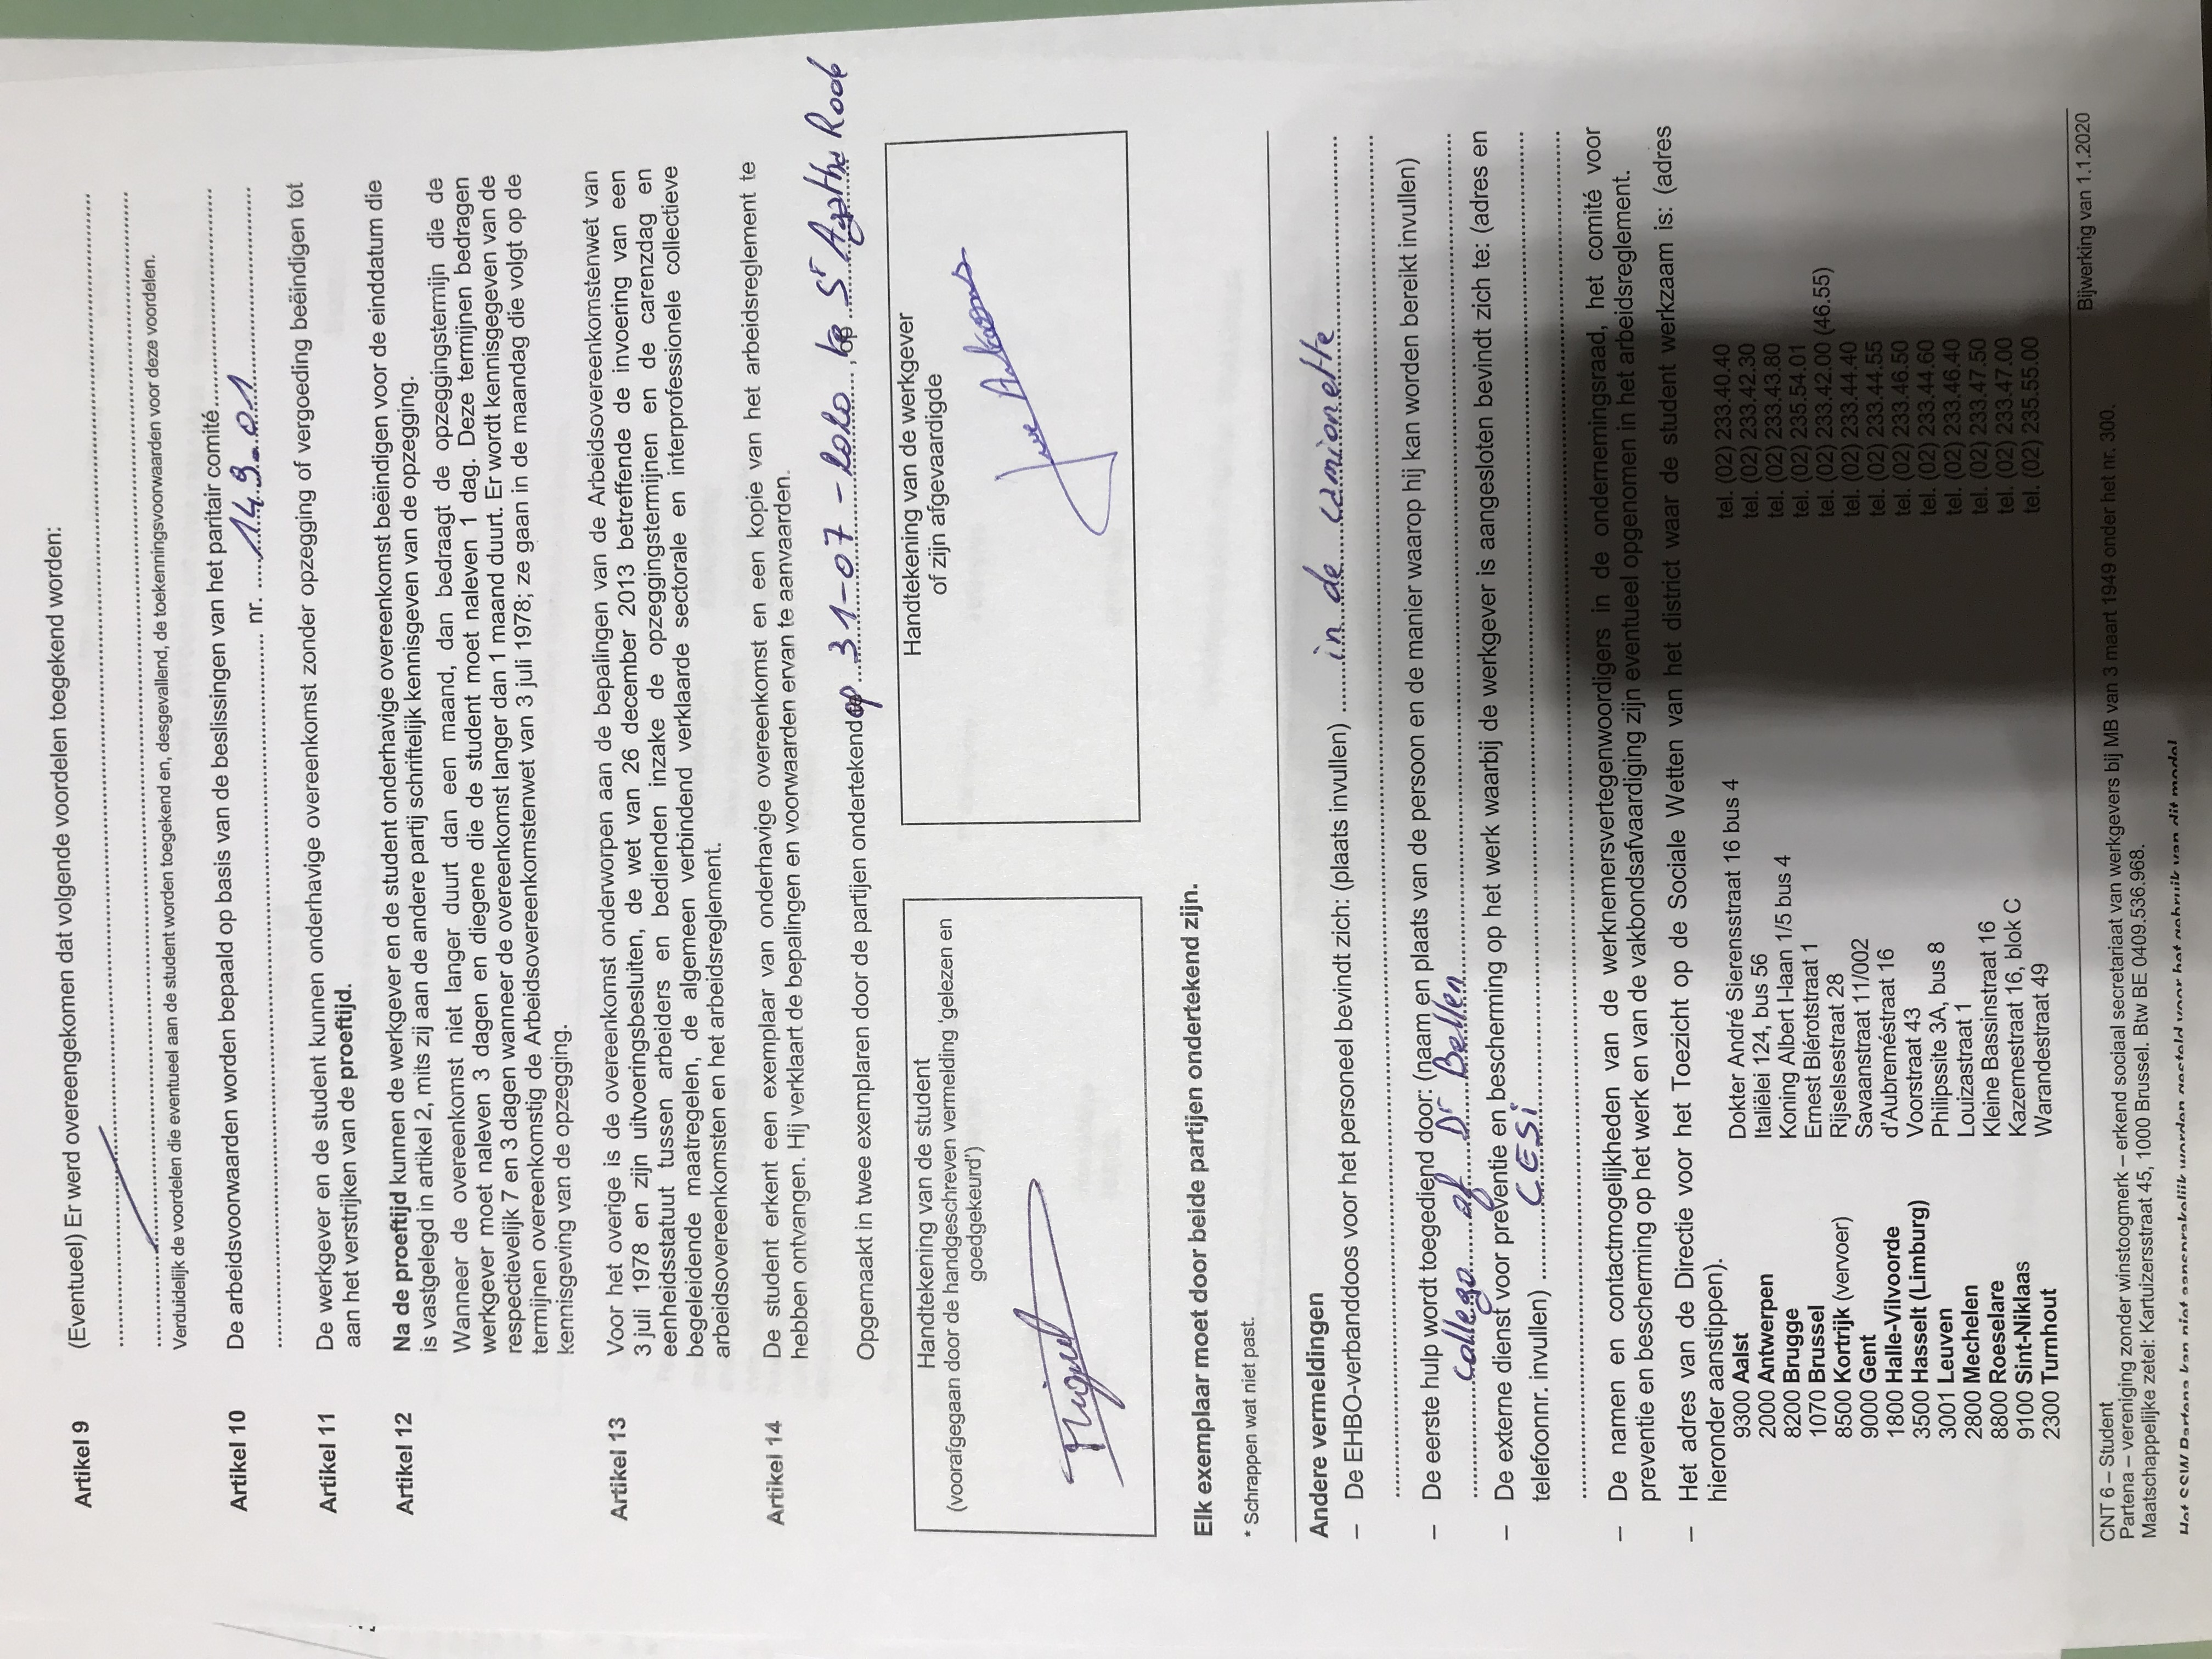 Artikel 9 (Eventueel) Er werd overeengekomen dat volgende voordelen toegekend worden:
Verduidelijk de voordelen die eventueel aan de student worden toegekend en, desgevallend, de toekenningsvoorwaarden voor deze voordelen.
Artikel 10 De arbeidsvoorwaarden worden bepaald op basis van de beslissingen van het paritair comité
nr. 149-01
Artikel 11 De werkgever en de student kunnen onderhavige overeenkomst zonder opzegging of vergoeding beëindigen tot
aan het verstrijken van de proeftijd.
Artikel 12 Na de proeftijd kunnen de werkgever en de student onderhavige overeenkomst beëindigen voor de einddatum die
is vastgelegd in artikel 2, mits zij aan de andere partij schriftelijk kennisgeven van de opzegging.
Wanneer de overeenkomst niet langer duurt dan een maand, dan bedraagt de opzeggingstermijn die de
werkgever moet naleven 3 dagen en diegene die de student moet naleven 1 dag. Deze termijnen bedragen
respectievelijk 7 en 3 dagen wanneer de overeenkomst langer dan 1 maand duurt. Er wordt kennisgegeven van de
termijnen overeenkomstig de Arbeidsovereenkomstenwet van 3 juli 1978; ze gaan in de maandag die volgt op de
kennisgeving van de opzegging.
Artikel 13 Voor het overige is de overeenkomst onderworpen aan de bepalingen van de Arbeidsovereenkomstenwet van
3 juli 1978 en zijn uitvoeringsbesluiten, de wet van 26 december 2013 betreffende de invoering van een
eenheidsstatuut tussen arbeiders en bedienden inzake de opzeggingstermijnen en de carenzdag en
begeleidende maatregelen, de algemeen verbindend verklaarde sectorale en interprofessionele collectieve
arbeidsovereenkomsten en het arbeidsreglement.
Artikel 14 De student erkent een exemplaar van onderhavige overeenkomst en een kopie van het arbeidsreglement te
hebben ontvangen. Hij verklaart de bepalingen en voorwaarden ervan te aanvaarden.
Opgemaakt in twee exemplaren door de partijen ondertekend op 31-07-2020, te St Agatha Rode
Handtekening van de student
(voorafgegaan door de handgeschreven vermelding 'gelezen en
goedgekeurd')
Miguel
Handtekening van de werkgever
of zijn afgevaardigde
Elk exemplaar moet door beide partijen ondertekend zijn.
* Schrappen wat niet past.
Andere vermeldingen
– De EHBO-verbanddoos voor het personeel bevindt zich: (plaats invullen) in de camionette
– De eerste hulp wordt toegediend door: (naam en plaats van de persoon en de manier waarop hij kan worden bereikt invullen)
collega of Dr Bellen
– De externe dienst voor preventie en bescherming op het werk waarbij de werkgever is aangesloten bevindt zich te: (adres en
telefoonnr. invullen) CESi
– De namen en contactmogelijkheden van de werknemersvertegenwoordigers in de ondernemingsraad, het comité voor
preventie en bescherming op het werk en van de vakbondsafvaardiging zijn eventueel opgenomen in het arbeidsreglement.
– Het adres van de Directie voor het Toezicht op de Sociale Wetten van het district waar de student werkzaam is: (adres
hieronder aanstippen).
9300 Aalst Dokter André Sierensstraat 16 bus 4 tel. (02) 233.40.40
2000 Antwerpen Italiëlei 124, bus 56 tel. (02) 233.42.30
8200 Brugge Koning Albert I-laan 1/5 bus 4 tel. (02) 233.43.80
1070 Brussel Ernest Blérotstraat 1 tel. (02) 235.54.01
8500 Kortrijk (vervoer) Rijselsestraat 28 tel. (02) 233.42.00 (46.55)
9000 Gent Savaanstraat 11/002 tel. (02) 233.44.40
1800 Halle-Vilvoorde d'Aubreméstraat 16 tel. (02) 233.44.55
3500 Hasselt (Limburg) Voorstraat 43 tel. (02) 233.46.50
3001 Leuven Philipssite 3A, bus 8 tel. (02) 233.44.60
2800 Mechelen Louizastraat 1 tel. (02) 233.46.40
8800 Roeselare Kleine Bassinstraat 16 tel. (02) 233.47.50
9100 Sint-Niklaas Kazernestraat 16, blok C tel. (02) 233.47.00
2300 Turnhout Warandestraat 49 tel. (02) 235.55.00
Bijwerking van 1.1.2020
CNT 6 – Student
Partena – vereniging zonder winstoogmerk – erkend sociaal secretariaat van werkgevers bij MB van 3 maart 1949 onder het nr. 300.
Maatschappelijke zetel: Kartuizersstraat 45, 1000 Brussel. Btw BE 0409.536.968.
Het SSW Partena kan niet aansprakelijk worden gesteld voor het gebruik van dit model